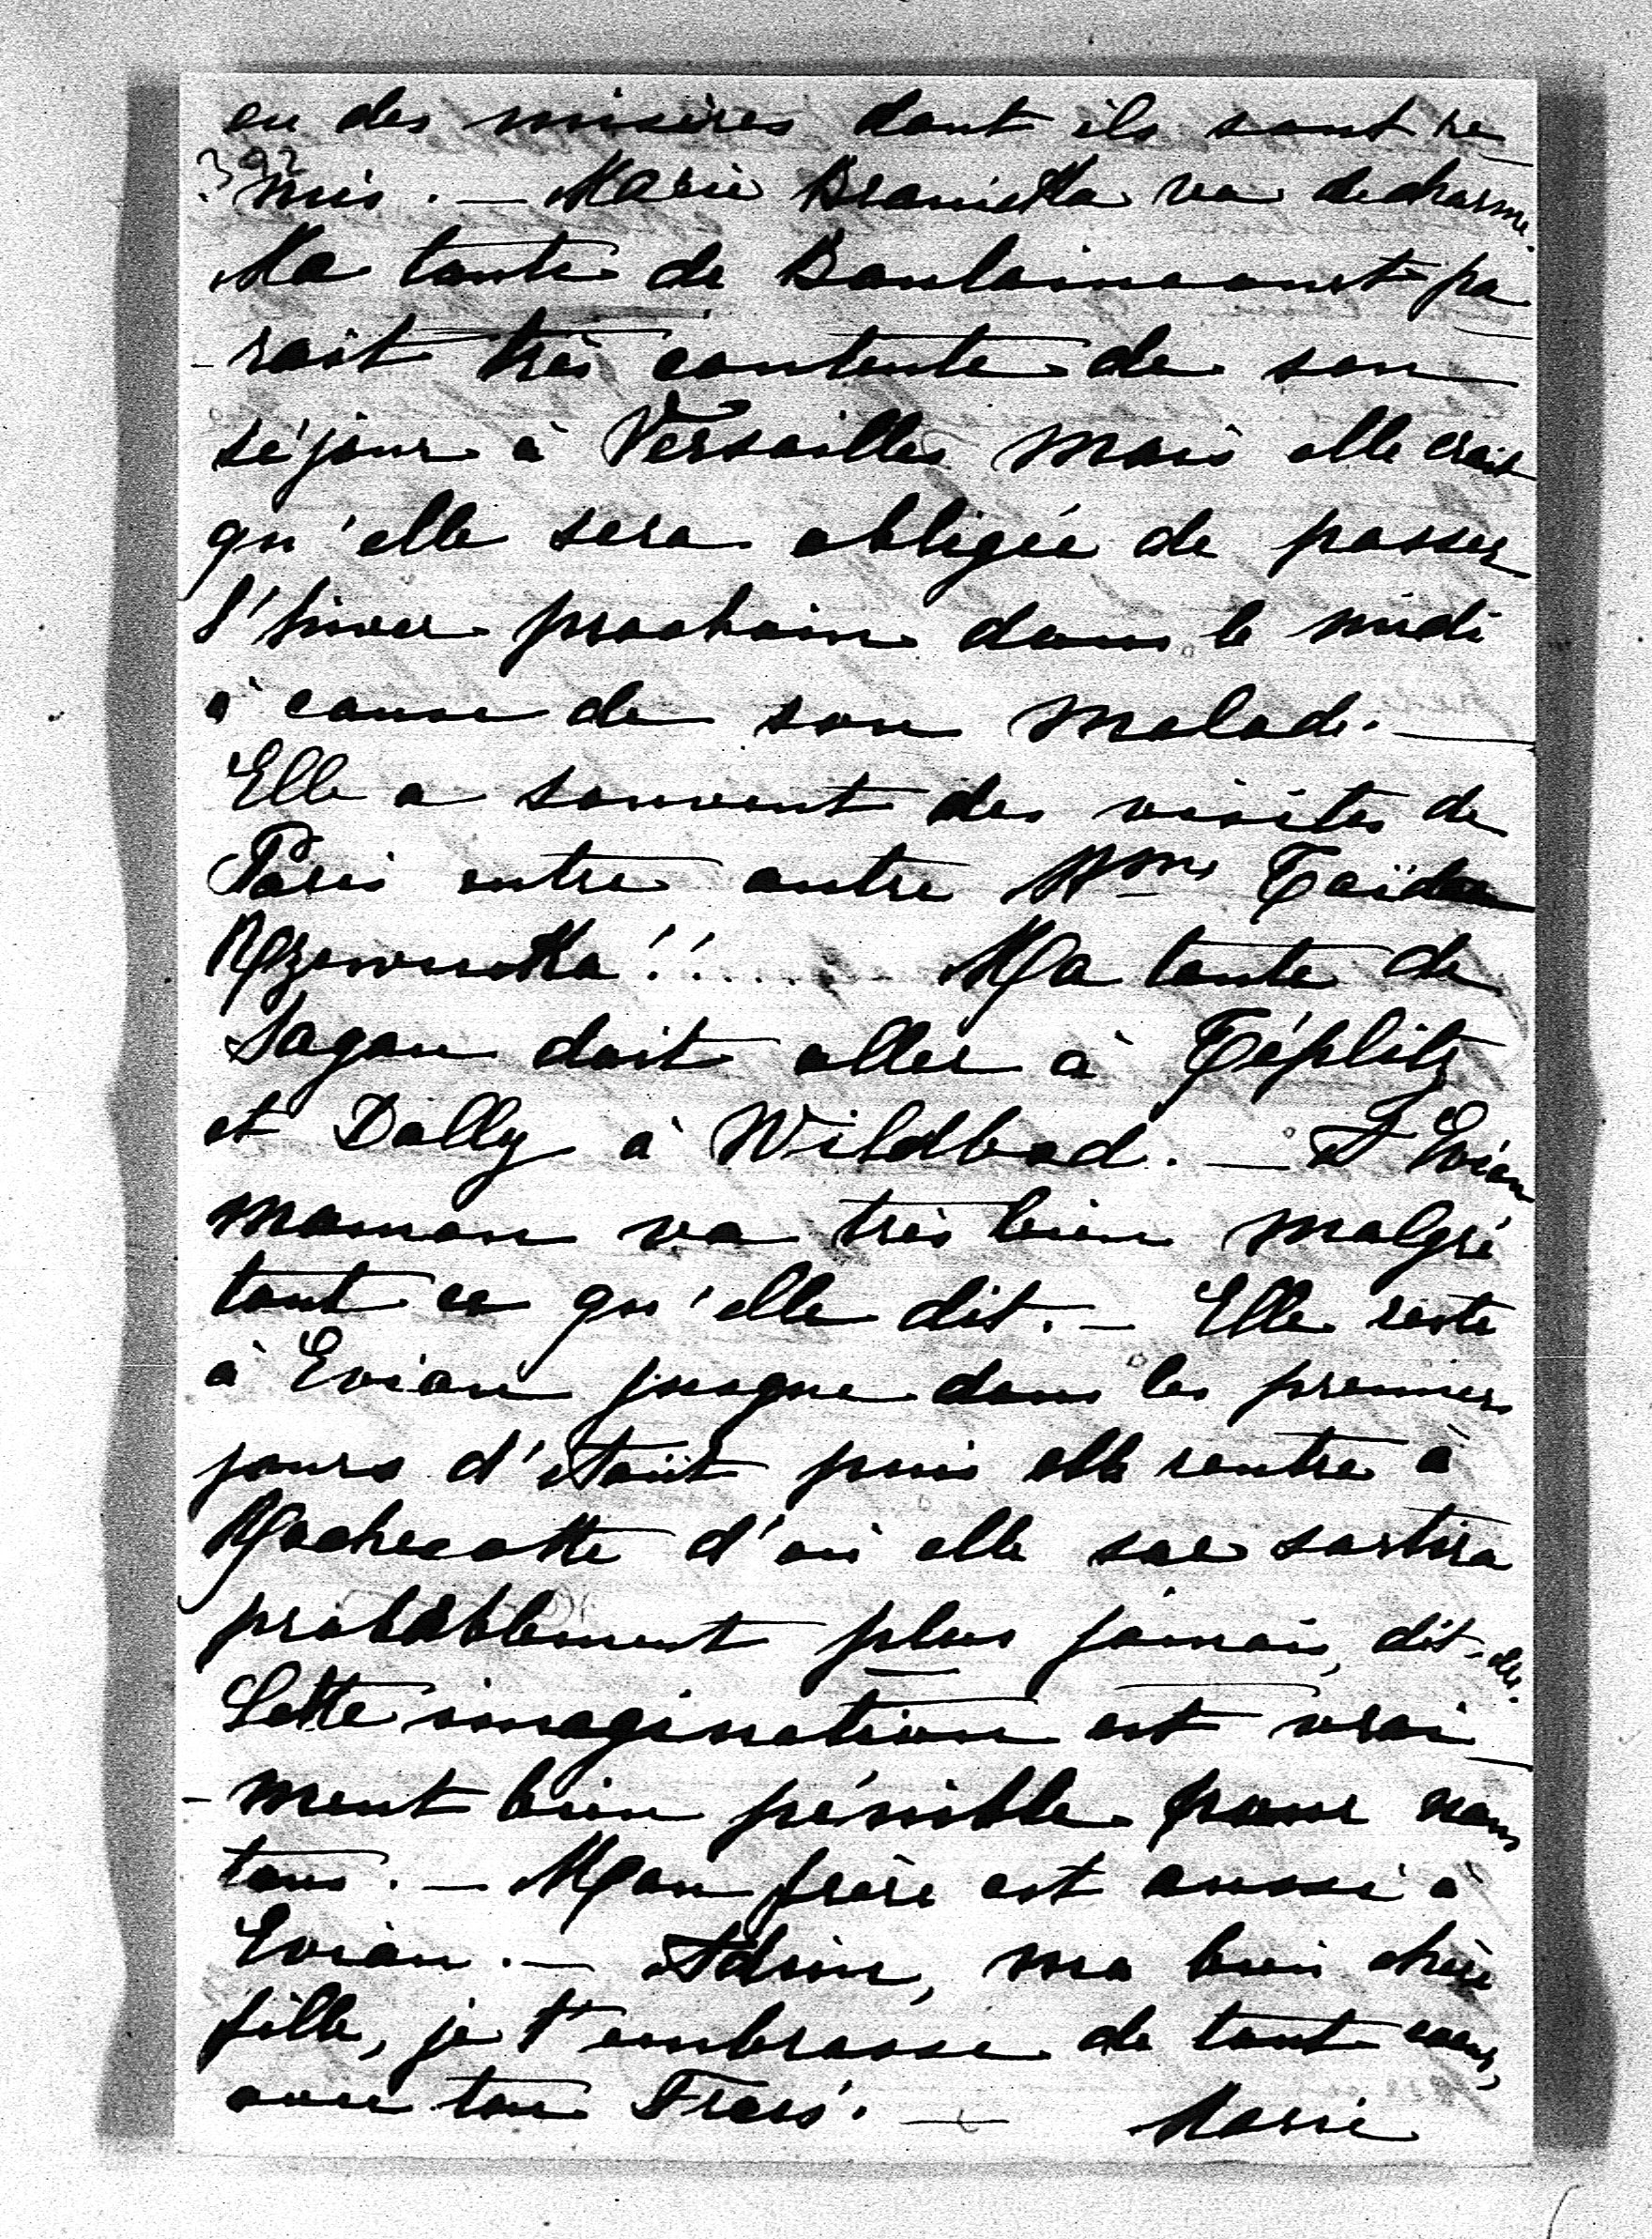 eu des misères dont ils sont re
392
mis. — Marie Branicka va de charme.
Ma tante de Boulaincourt pa
-rait très contente de son
séjour à Versailles mais elle croit
qu'elle sera obligée de passer
l'hiver prochain dans le midi
à cause de son malade. —
Elle a souvent des visites de
Paris entre autre Mme Taïda
Rzewuska!!..... Ma tante de
Sagan doit aller à Téplitz
et Dolly à Wildbad. — A Evian
maman va très bien malgré
tout ce qu'elle dit. — Elle reste
à Evian jusque dans les premiers
jours d'Août puis elle rentre à
Rochecotte d'où elle ne sortira
probablement plus jamais, dit-elle.
Cette imagination est vrai
-ment bien pénible pour nous
tous. — Mon frère est aussi à
Evian. — Adieu, ma bien chère
fille, je t'embrasse de tout coeur,
avec ton Frère. — Marie